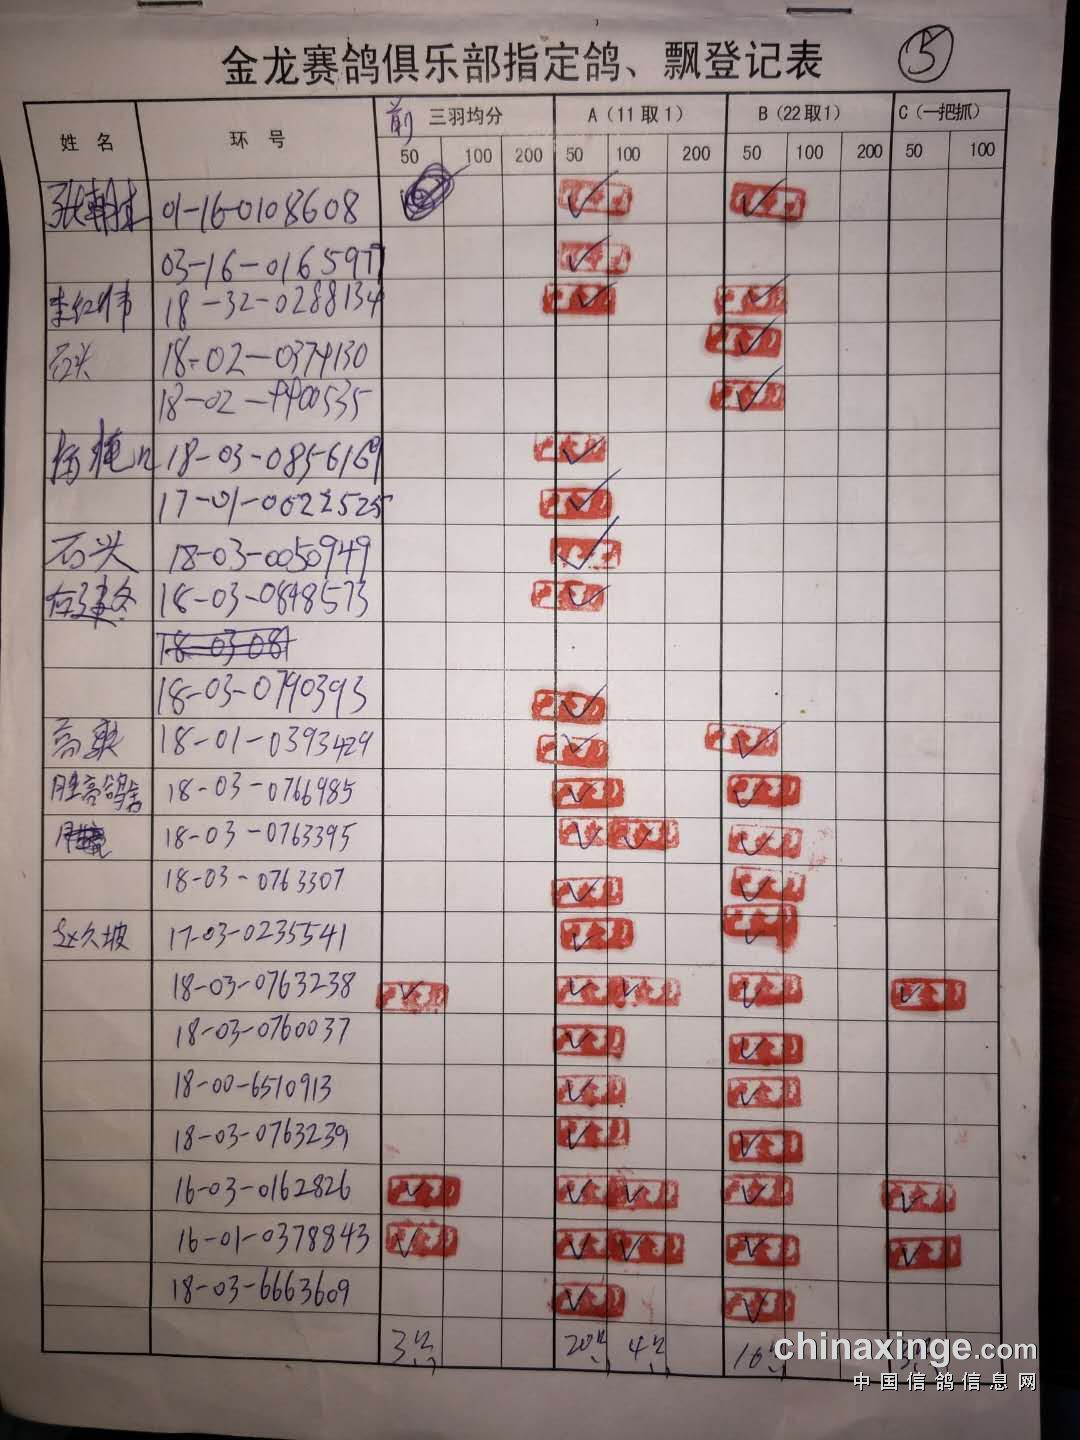 金龙赛鸽俱乐部指定鸽、飘登记表 ⑤
姓 名 环 号 前三羽均分 A(11取1) B(22取1) C(一把抓)
50 100 200 50 100 200 50 100 200 50 100
01-16-0108608 ✓ ✓
03-16-0165977 ✓
18-32-0288134 ✓ ✓
石头 18-02-0374130 ✓
18-02-4400535 ✓
18-03-0856169 ✓
17-01-0022525 ✓
石头 18-03-0050949 ✓
18-03-0848573 ✓
18-03-0790393 ✓
高爽 18-01-0393429 ✓ ✓
胜亮鸽舍 18-03-0766985 ✓ ✓
18-03-0763395 ✓ ✓ ✓
18-03-0763307 ✓ ✓
赵久坡 17-03-0235541 ✓ ✓
18-03-0763238 ✓ ✓ ✓ ✓ ✓
18-03-0760037 ✓ ✓
18-00-6510913 ✓ ✓
18-03-0763239 ✓ ✓
16-03-0162826 ✓ ✓ ✓ ✓ ✓
16-01-0378843 ✓ ✓ ✓ ✓ ✓
18-03-6663609 ✓ ✓
3 20 4 16 3
chinaxinge.com
中国信鸽信息网